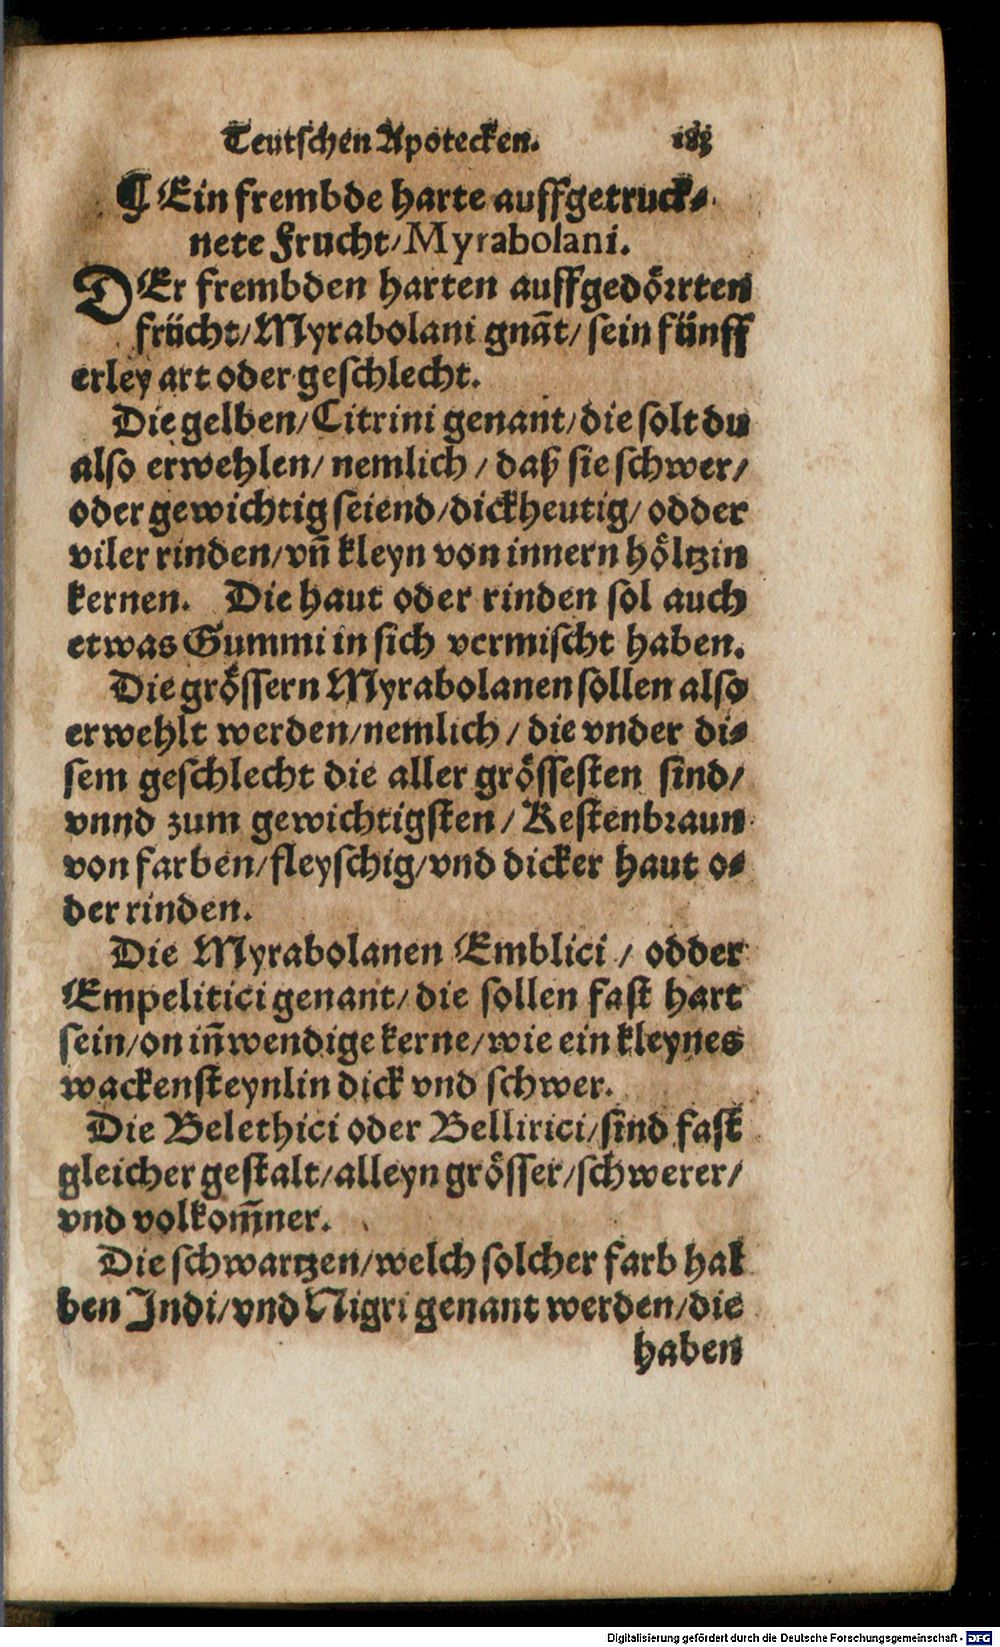 Teutschen Apotecken. 183
¶ Ein frembde harte auffgetruck⸗
nete Frucht/Myrabolani.
DEr frembden harten auffgedörrten
frücht/Myrabolani gnãt/sein fünff
erley art oder geschlecht.
Die gelben/Citrini genant/die solt du
also erwehlen/nemlich/daß sie schwer/
oder gewichtig seiend/dickheutig/odder
viler rinden/vñ kleyn von innern höltzin
kernen. Die haut oder rinden sol auch
etwas Gummi in sich vermischt haben.
Die grössern Myrabolanen sollen also
erwehlt werden/nemlich/die vnder di⸗
sem geschlecht die aller grössesten sind/
vnnd zum gewichtigsten/Kestenbraun
von farben/fleyschig/vnd dicker haut o⸗
der rinden.
Die Myrabolanen Emblici/odder
Empelitici genant/die sollen fast hart
sein/on iñwendige kerne/wie ein kleynes
wackensteynlin dick vnd schwer.
Die Belethici oder Bellirici/sind fast
gleicher gestalt/alleyn grösser/schwerer/
vnd volkom̃ner.
Die schwartzen/welch solcher farb hal
ben Indi/vnd Nigri genant werden/die
haben
Digitalisierung gefördert durch die Deutsche Forschungsgemeinschaft - DFG